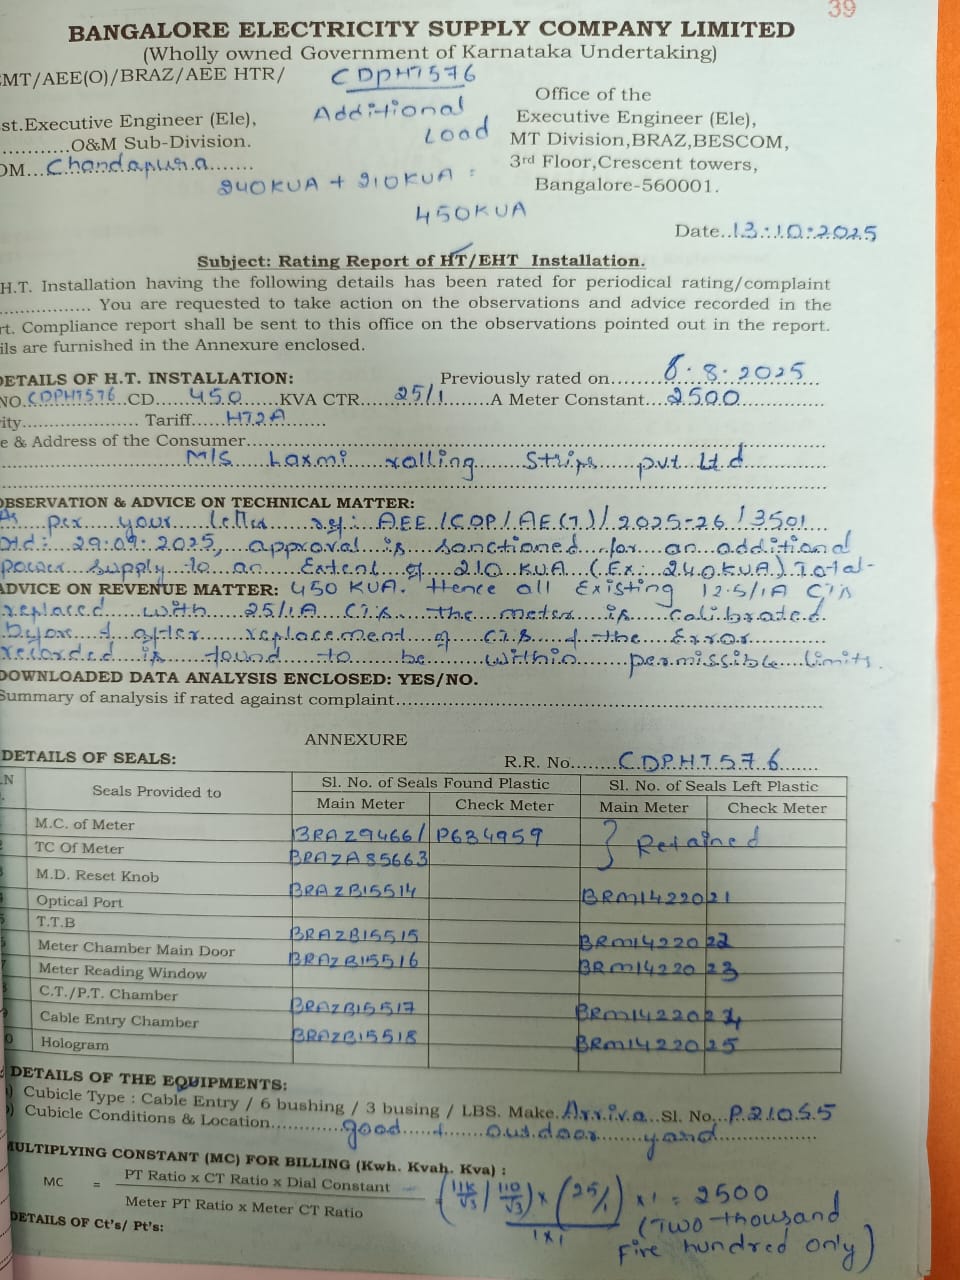 39
BANGALORE ELECTRICITY SUPPLY COMPANY LIMITED
(Wholly owned Government of Karnataka Undertaking)
EMT/AEE(O)/BRAZ/AEE HTR/ CDPHT576
Additional
Load
240KVA + 210KVA =
450KVA
st.Executive Engineer (Ele),
...........O&M Sub-Division.
OM...Chandapura.......
Office of the
Executive Engineer (Ele),
MT Division,BRAZ,BESCOM,
3rd Floor,Crescent towers,
Bangalore-560001.
Date..13.:10:2025
Subject: Rating Report of HT/EHT Installation.
H.T. Installation having the following details has been rated for periodical rating/complaint
................ You are requested to take action on the observations and advice recorded in the
rt. Compliance report shall be sent to this office on the observations pointed out in the report.
ils are furnished in the Annexure enclosed.
DETAILS OF H.T. INSTALLATION: Previously rated on.......8.8.2025
NO.CDPHT576..CD.....450.....KVA CTR......25/1.......A Meter Constant....2500
ity..................... Tariff......HT2A.......
e & Address of the Consumer...
M/S Laxmi rolling Strips pvt Ltd
OBSERVATION & ADVICE ON TECHNICAL MATTER:
As per your letter ref: AEE/COP/AE(T)/2025-26/3501
Dtd: 29.09.2025, approval is sanctioned for an additional
power supply to an Extent of 210 KVA (Ex: 240KVA) Total-
ADVICE ON REVENUE MATTER: 450 KVA. Hence all Existing 12.5/1A CTs
replaced with 25/1A CTs. the meter is Calibrated
before & after replacement of CTs & the Error
recorded is found to be within permissible limits.
DOWNLOADED DATA ANALYSIS ENCLOSED: YES/NO.
Summary of analysis if rated against complaint...
ANNEXURE
DETAILS OF SEALS: R.R. No........CDPHT576
.N Seals Provided to Sl. No. of Seals Found Plastic Sl. No. of Seals Left Plastic
Main Meter Check Meter Main Meter Check Meter
M.C. of Meter BRAZ94661 P634959 } Retained
TC Of Meter BRAZA85663
M.D. Reset Knob
Optical Port BRAZB15514 BRM1422021
T.T.B
Meter Chamber Main Door BRAZB15515 BRM1422022
Meter Reading Window BRAZB15516 BRM1422023
C.T./P.T. Chamber
Cable Entry Chamber BRAZB15517 BRM1422024
Hologram BRAZB15518 BRM1422025
DETAILS OF THE EQUIPMENTS:
) Cubicle Type : Cable Entry / 6 bushing / 3 busing / LBS. Make.Arriva...Sl. No...P.210.5.5
) Cubicle Conditions & Location............good & outdoor yard
MULTIPLYING CONSTANT (MC) FOR BILLING (Kwh. Kvah. Kva) :
MC = PT Ratio x CT Ratio x Dial Constant
Meter PT Ratio x Meter CT Ratio
= (11K/√3 / 110/√3) x (25/1) x 1 = 2500
1x1
(Two thousand
Five hundred only)
DETAILS OF Ct's/ Pt's: